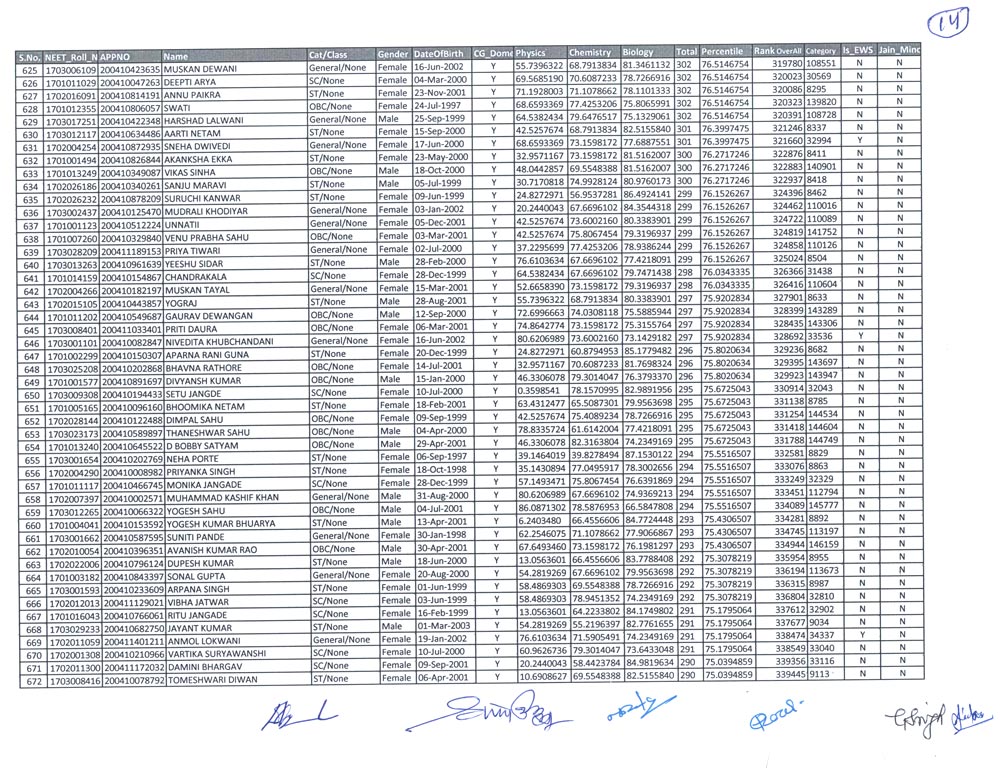 14
S.No. NEET_Roll_N APPNO Name Cat/Class Gender DateOfBirth CG_Dome Physics Chemistry Biology Total Percentile Rank OverAll Category Is_EWS Jain_Minc
625 1703006109 200410423635 MUSKAN DEWANI General/None Female 16-Jun-2002 Y 55.7396322 68.7913834 81.3461132 302 76.5146754 319780 108551 N N
626 1701011029 200410047263 DEEPTI ARYA SC/None Female 04-Mar-2000 Y 69.5685190 70.6087233 78.7266916 302 76.5146754 320023 30569 N N
627 1702016091 200410814191 ANNU PAIKRA ST/None Female 23-Nov-2001 Y 71.1928003 71.1078662 78.1101333 302 76.5146754 320086 8295 N N
628 1701012355 200410806057 SWATI OBC/None Female 24-Jul-1997 Y 68.6593369 77.4253206 75.8065991 302 76.5146754 320323 139820 N N
629 1703017251 200410422348 HARSHAD LALWANI General/None Male 25-Sep-1999 Y 64.5382434 79.6476517 75.1329061 302 76.5146754 320391 108728 N N
630 1703012117 200410634486 AARTI NETAM ST/None Female 15-Sep-2000 Y 42.5257674 68.7913834 82.5155840 301 76.3997475 321246 8337 N N
631 1702004254 200410872935 SNEHA DWIVEDI General/None Female 17-Jun-2000 Y 68.6593369 73.1598172 77.6887551 301 76.3997475 321660 32994 Y N
632 1701001494 200410826844 AKANKSHA EKKA ST/None Female 23-May-2000 Y 32.9571167 73.1598172 81.5162007 300 76.2717246 322876 8411 N N
633 1701013249 200410349087 VIKAS SINHA OBC/None Male 18-Oct-2000 Y 48.0442857 69.5548388 81.5162007 300 76.2717246 322883 140901 N N
634 1702026186 200410340261 SANJU MARAVI ST/None Male 05-Jul-1999 Y 30.7170818 74.9928124 80.9760173 300 76.2717246 322937 8418 N N
635 1702026232 200410878209 SURUCHI KANWAR ST/None Female 09-Jun-1999 Y 24.8272971 56.9537281 86.4924141 299 76.1526267 324396 8462 N N
636 1703002437 200410125470 MUDRALI KHODIYAR General/None Female 03-Jan-2002 Y 20.2440043 67.6696102 84.3544318 299 76.1526267 324462 110016 N N
637 1701001123 200410512224 UNNATII General/None Female 05-Dec-2001 Y 42.5257674 73.6002160 80.3383901 299 76.1526267 324722 110089 N N
638 1701007260 200410329840 VENU PRABHA SAHU OBC/None Female 03-Mar-2001 Y 42.5257674 75.8067454 79.3196937 299 76.1526267 324819 141752 N N
639 1703028209 200411189153 PRIYA TIWARI General/None Female 02-Jul-2000 Y 37.2295699 77.4253206 78.9386244 299 76.1526267 324858 110126 N N
640 1703013263 200410961639 YEESHU SIDAR ST/None Male 28-Feb-2000 Y 76.6103634 67.6696102 77.4218091 299 76.1526267 325024 8504 N N
641 1701014159 200410154867 CHANDRAKALA SC/None Female 28-Dec-1999 Y 64.5382434 67.6696102 79.7471438 298 76.0343335 326366 31438 N N
642 1702004266 200410182197 MUSKAN TAYAL General/None Female 15-Mar-2001 Y 52.6658390 73.1598172 79.3196937 298 76.0343335 326416 110604 N N
643 1702015105 200410443857 YOGRAJ ST/None Male 28-Aug-2001 Y 55.7396322 68.7913834 80.3383901 297 75.9202834 327901 8633 N N
644 1701011202 200410549687 GAURAV DEWANGAN OBC/None Male 12-Sep-2000 Y 72.6996663 74.0308118 75.5885944 297 75.9202834 328399 143289 N N
645 1703008401 200411033401 PRITI DAURA OBC/None Female 06-Mar-2001 Y 74.8642774 73.1598172 75.3155764 297 75.9202834 328435 143306 N N
646 1703001101 200410082847 NIVEDITA KHUBCHANDANI General/None Female 16-Jun-2002 Y 80.6206989 73.6002160 73.1429182 297 75.9202834 328692 33536 Y N
647 1701002299 200410150307 APARNA RANI GUNA ST/None Female 20-Dec-1999 Y 24.8272971 60.8794953 85.1779482 296 75.8020634 329236 8682 N N
648 1703025208 200410202868 BHAVNA RATHORE OBC/None Female 14-Jul-2001 Y 32.9571167 70.6087233 81.7698324 296 75.8020634 329395 143697 N N
649 1701001577 200410891697 DIVYANSH KUMAR OBC/None Male 15-Jan-2000 Y 46.3306078 79.3014047 76.3793370 296 75.8020634 329923 143947 N N
650 1703009308 200410194433 SETU JANGDE SC/None Female 10-Jul-2000 Y 0.3598541 78.1570995 82.9891956 295 75.6725043 330914 32043 N N
651 1701005165 200410096160 BHOOMIKA NETAM ST/None Female 18-Feb-2001 Y 63.4312477 65.5087301 79.9563698 295 75.6725043 331138 8785 N N
652 1702028144 200410122488 DIMPAL SAHU OBC/None Female 09-Sep-1999 Y 42.5257674 75.4089234 78.7266916 295 75.6725043 331254 144534 N N
653 1703023173 200410589897 THANESHWAR SAHU OBC/None Male 04-Apr-2000 Y 78.8335724 61.6142004 77.4218091 295 75.6725043 331418 144604 N N
654 1701013240 200410645522 D BOBBY SATYAM OBC/None Male 29-Apr-2001 Y 46.3306078 82.3163804 74.2349169 295 75.6725043 331788 144749 N N
655 1703001654 200410202769 NEHA PORTE ST/None Female 06-Sep-1997 Y 39.1464019 39.8278494 87.1530122 294 75.5516507 332581 8829 N N
656 1702004290 200410008982 PRIYANKA SINGH ST/None Female 18-Oct-1998 Y 35.1430894 77.0495917 78.3002656 294 75.5516507 333076 8863 N N
657 1701011117 200410466745 MONIKA JANGADE SC/None Female 28-Dec-1999 Y 57.1493471 75.8067454 76.6391869 294 75.5516507 333249 32329 N N
658 1702007397 200410002571 MUHAMMAD KASHIF KHAN General/None Male 31-Aug-2000 Y 80.6206989 67.6696102 74.9369213 294 75.5516507 333451 112794 N N
659 1703012265 200410066322 YOGESH SAHU OBC/None Male 04-Jul-2001 Y 86.0871302 78.5876953 66.5847808 294 75.5516507 334089 145777 N N
660 1701004041 200410153592 YOGESH KUMAR BHUARYA ST/None Male 13-Apr-2001 Y 6.2403480 66.4556606 84.7724448 293 75.4306507 334281 8892 N N
661 1703001662 200410587595 SUNITI PANDE General/None Female 30-Jan-1998 Y 62.2546075 71.1078662 77.9066867 293 75.4306507 334745 113197 N N
662 1702010054 200410396351 AVANISH KUMAR RAO OBC/None Male 30-Apr-2001 Y 67.6493460 73.1598172 76.1981297 293 75.4306507 334944 146159 N N
663 1702022006 200410796124 DUPESH KUMAR ST/None Male 18-Jun-2000 Y 13.0563601 66.4556606 83.7788408 292 75.3078219 335954 8955 N N
664 1701003182 200410843397 SONAL GUPTA General/None Female 20-Aug-2000 Y 54.2819269 67.6696102 79.9563698 292 75.3078219 336194 113673 N N
665 1703001593 200410233609 ARPANA SINGH ST/None Female 01-Jun-1999 Y 58.4869303 69.5548388 78.7266916 292 75.3078219 336315 8987 N N
666 1702012013 200411129021 VIBHA JATWAR SC/None Female 03-Jun-1999 Y 58.4869303 78.9451352 74.2349169 292 75.3078219 336804 32810 N N
667 1701016043 200410766061 RITU JANGADE SC/None Female 16-Feb-1999 Y 13.0563601 64.2233802 84.1749802 291 75.1795064 337612 32902 N N
668 1703029233 200410682750 JAYANT KUMAR ST/None Male 01-Mar-2003 Y 54.2819269 55.2196397 82.7761655 291 75.1795064 337677 9034 N N
669 1702011059 200411401211 ANMOL LOKWANI General/None Female 19-Jan-2002 Y 76.6103634 71.5905491 74.2349169 291 75.1795064 338474 34337 Y N
670 1702001308 200410210966 VARTIKA SURYAWANSHI SC/None Female 10-Jul-2000 Y 60.9626736 79.3014047 73.6433048 291 75.1795064 338549 33040 N N
671 1702011300 200411172032 DAMINI BHARGAV SC/None Female 09-Sep-2001 Y 20.2440043 58.4423784 84.9819634 290 75.0394859 339356 33116 N N
672 1703008416 200410078792 TOMESHWARI DIWAN ST/None Female 06-Apr-2001 Y 10.6908627 69.5548388 82.5155840 290 75.0394859 339445 9113 N N